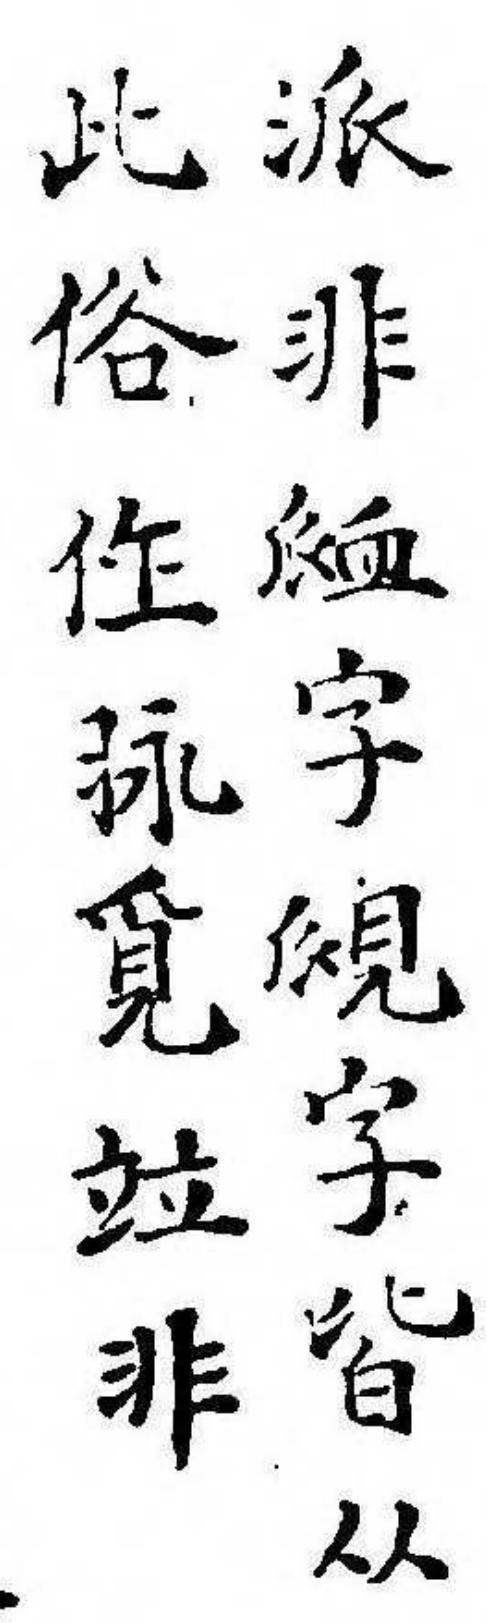 派非𧖴字覛字皆从
此俗作脉覓竝非